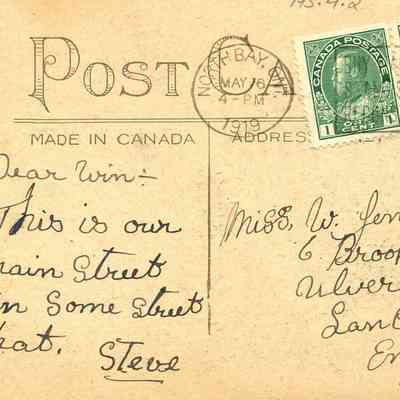 113.4.2
POST C
NORTH BAY, ONT.
MAY 6
4-PM
1919
CANADA POSTAGE
1 ONE CENT 1
MADE IN CANADA
ADDRESS
Dear Win:-
This is our
main street
in some street
hat.
Steve
Miss, W. Jen
6 Broo
Ulver
Lanc
En